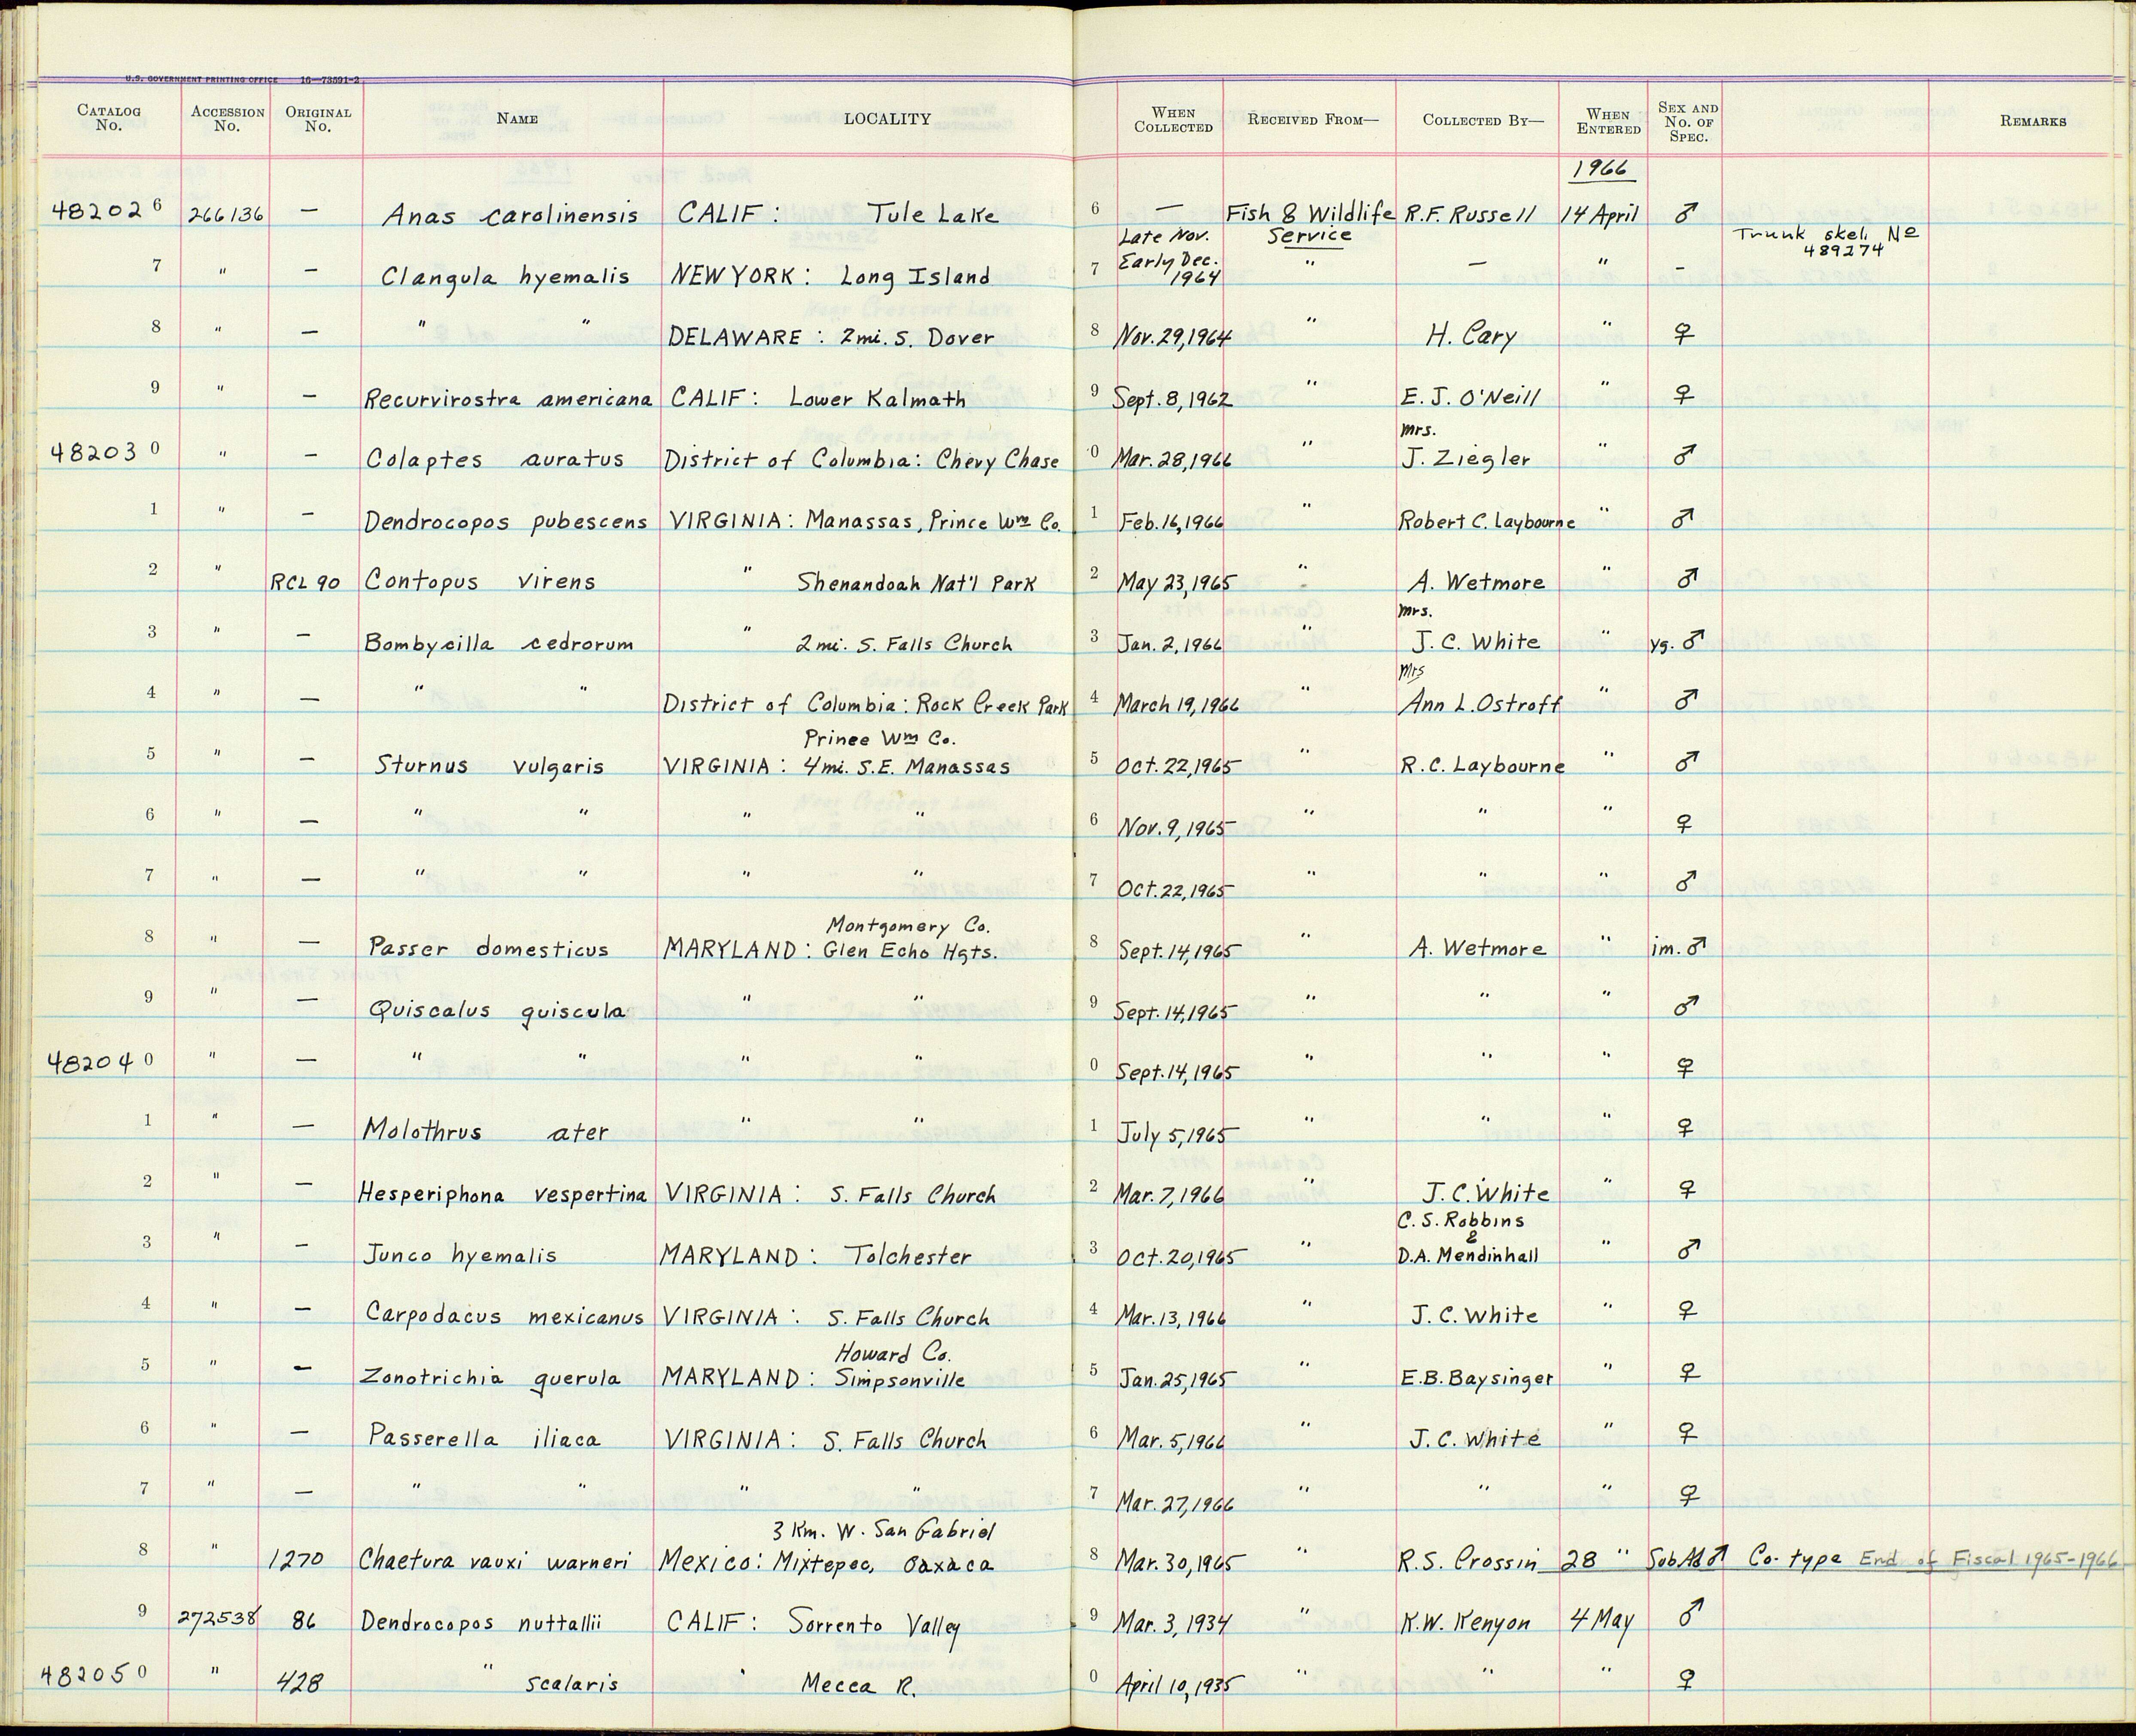 U.S. GOVERNMENT PRINTING OFFICE 16—73591-2
CATALOG No. ACCESSION No. ORIGINAL No. NAME LOCALITY WHEN COLLECTED RECEIVED FROM— COLLECTED BY— WHEN ENTERED SEX AND No. OF SPEC. REMARKS
1966
482026 266136 — Anas carolinensis CALIF: Tule Lake 6 — Fish & Wildlife Service R.F. Russell 14 April ♂ Trunk skel. No 489274
7 " — Clangula hyemalis NEW YORK: Long Island 7 Late Nov. Early Dec. 1964 " — " –
8 " — " " DELAWARE: 2mi. S. Dover 8 Nov. 29, 1964 " H. Cary " ♀
9 " — Recurvirostra americana CALIF: Lower Kalmath 9 Sept. 8, 1962 " E. J. O'Neill " ♀
482030 " — Colaptes auratus District of Columbia: Chevy Chase 0 Mar. 28, 1966 " Mrs. J. Ziegler " ♂
1 " — Dendrocopos pubescens VIRGINIA: Manassas, Prince Wm Co. 1 Feb. 16, 1966 " Robert C. Laybourne " ♂
2 " RCL 90 Contopus virens " Shenandoah Nat'l Park 2 May 23, 1965 " A. Wetmore " ♂
3 " — Bombycilla cedrorum " 2mi. S. Falls Church 3 Jan. 2, 1966 " Mrs. J. C. White " yg. ♂
4 " — " " District of Columbia: Rock Creek Park 4 March 19, 1966 " Mrs Ann L. Ostroff " ♂
5 " — Sturnus vulgaris VIRGINIA: Prince Wm Co. 4mi. S.E. Manassas 5 Oct. 22, 1965 " R.C. Laybourne " ♂
6 " — " " " " 6 Nov. 9, 1965 " " " ♀
7 " — " " " " 7 Oct. 22, 1965 " " " ♂
8 " — Passer domesticus MARYLAND: Montgomery Co. Glen Echo Hgts. 8 Sept. 14, 1965 " A. Wetmore " im. ♂
9 " — Quiscalus quiscula " " 9 Sept. 14, 1965 " " " ♂
482040 " — " " " " 0 Sept. 14, 1965 " " " ♀
1 " — Molothrus ater " " 1 July 5, 1965 " " " ♀
2 " — Hesperiphona vespertina VIRGINIA: S. Falls Church 2 Mar. 7, 1966 " J.C. White " ♀
3 " — Junco hyemalis MARYLAND: Tolchester 3 Oct. 20, 1965 " C. S. Robbins & D.A. Mendinhall " ♂
4 " — Carpodacus mexicanus VIRGINIA: S. Falls Church 4 Mar. 13, 1966 " J. C. White " ♀
5 " — Zonotrichia querula MARYLAND: Howard Co. Simpsonville 5 Jan. 25, 1965 " E.B. Baysinger " ♀
6 " — Passerella iliaca VIRGINIA: S. Falls Church 6 Mar. 5, 1966 " J. C. White " ♀
7 " — " " " " 7 Mar. 27, 1966 " " " ♀
8 " 1270 Chaetura vauxi warneri Mexico: 3 Km. W. San Gabriel Mixtepec, Oaxaca 8 Mar. 30, 1965 " R.S. Crossin 28 " Sub Ad ♂ Co-type End of Fiscal 1965-1966
9 272538 86 Dendrocopos nuttallii CALIF: Sorrento Valley 9 Mar. 3, 1934 " K.W. Kenyon 4 May ♂
482050 " 428 " scalaris " Mecca R. 0 April 10, 1935 " " " ♀